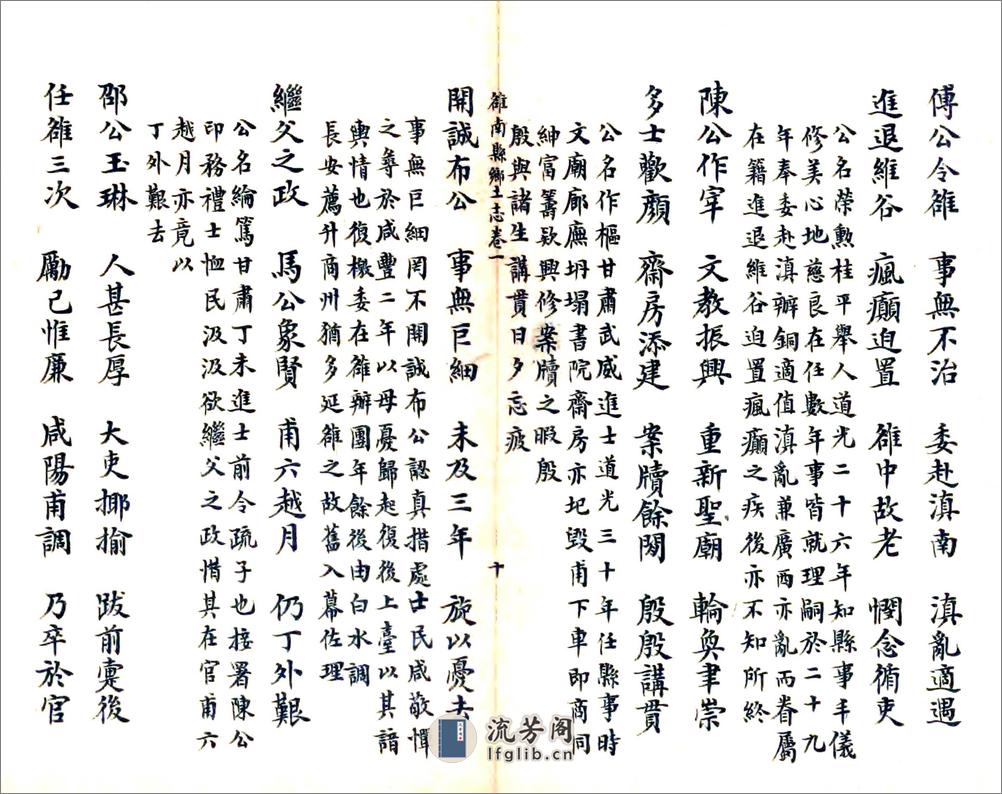 傅公令雒　事無不治　委赴滇南　滇亂適遇
進退維谷　瘋癲迫置　雒中故老　憫念循吏
公名榮勲桂平舉人道光二十六年知縣事丰儀
修美心地慈良在任數年事皆就理嗣於二十九
年奉委赴滇辦銅適值滇亂兼廣西亦亂而眷屬
在籍進退維谷迫置瘋癲之疾後亦不知所終
陳公作宰　文教振興　重新聖廟　輪奐聿崇
多士歡顏　齋房添建　案牘餘閒　殷殷講貫
公名作樞甘肅武威進士道光三十年任縣事時
文廟廊廡坍塌書院齋房亦圮毀甫下車即商同
紳富籌欵興修案牘之暇殷
殷與諸生講貫日夕忘疲
雒南縣鄉土志卷一
十
開誠布公　事無巨細　未及三年　旋以憂去
事無巨細罔不開誠布公認真措處士民咸敬憚
之尊於咸豐二年以母憂歸起復後上臺以其諳
輿情也復檄委在雒辦團年餘後由白水調
長安薦升商州猶多延雒之故舊入幕佐理
繼父之政　馬公象賢　甫六越月　仍丁外艱
公名綸篤甘肅丁未進士前令疏子也接署陳公
印務禮士恤民汲汲欲繼父之政惜其在官甫六
越月亦竟以
丁外艱去
邵公玉琳　人甚長厚　大吏揶揄　跋前疐後
任雒三次　勵己惟廉　咸陽甫調　乃卒於官
流芳阁
lfglib.cn